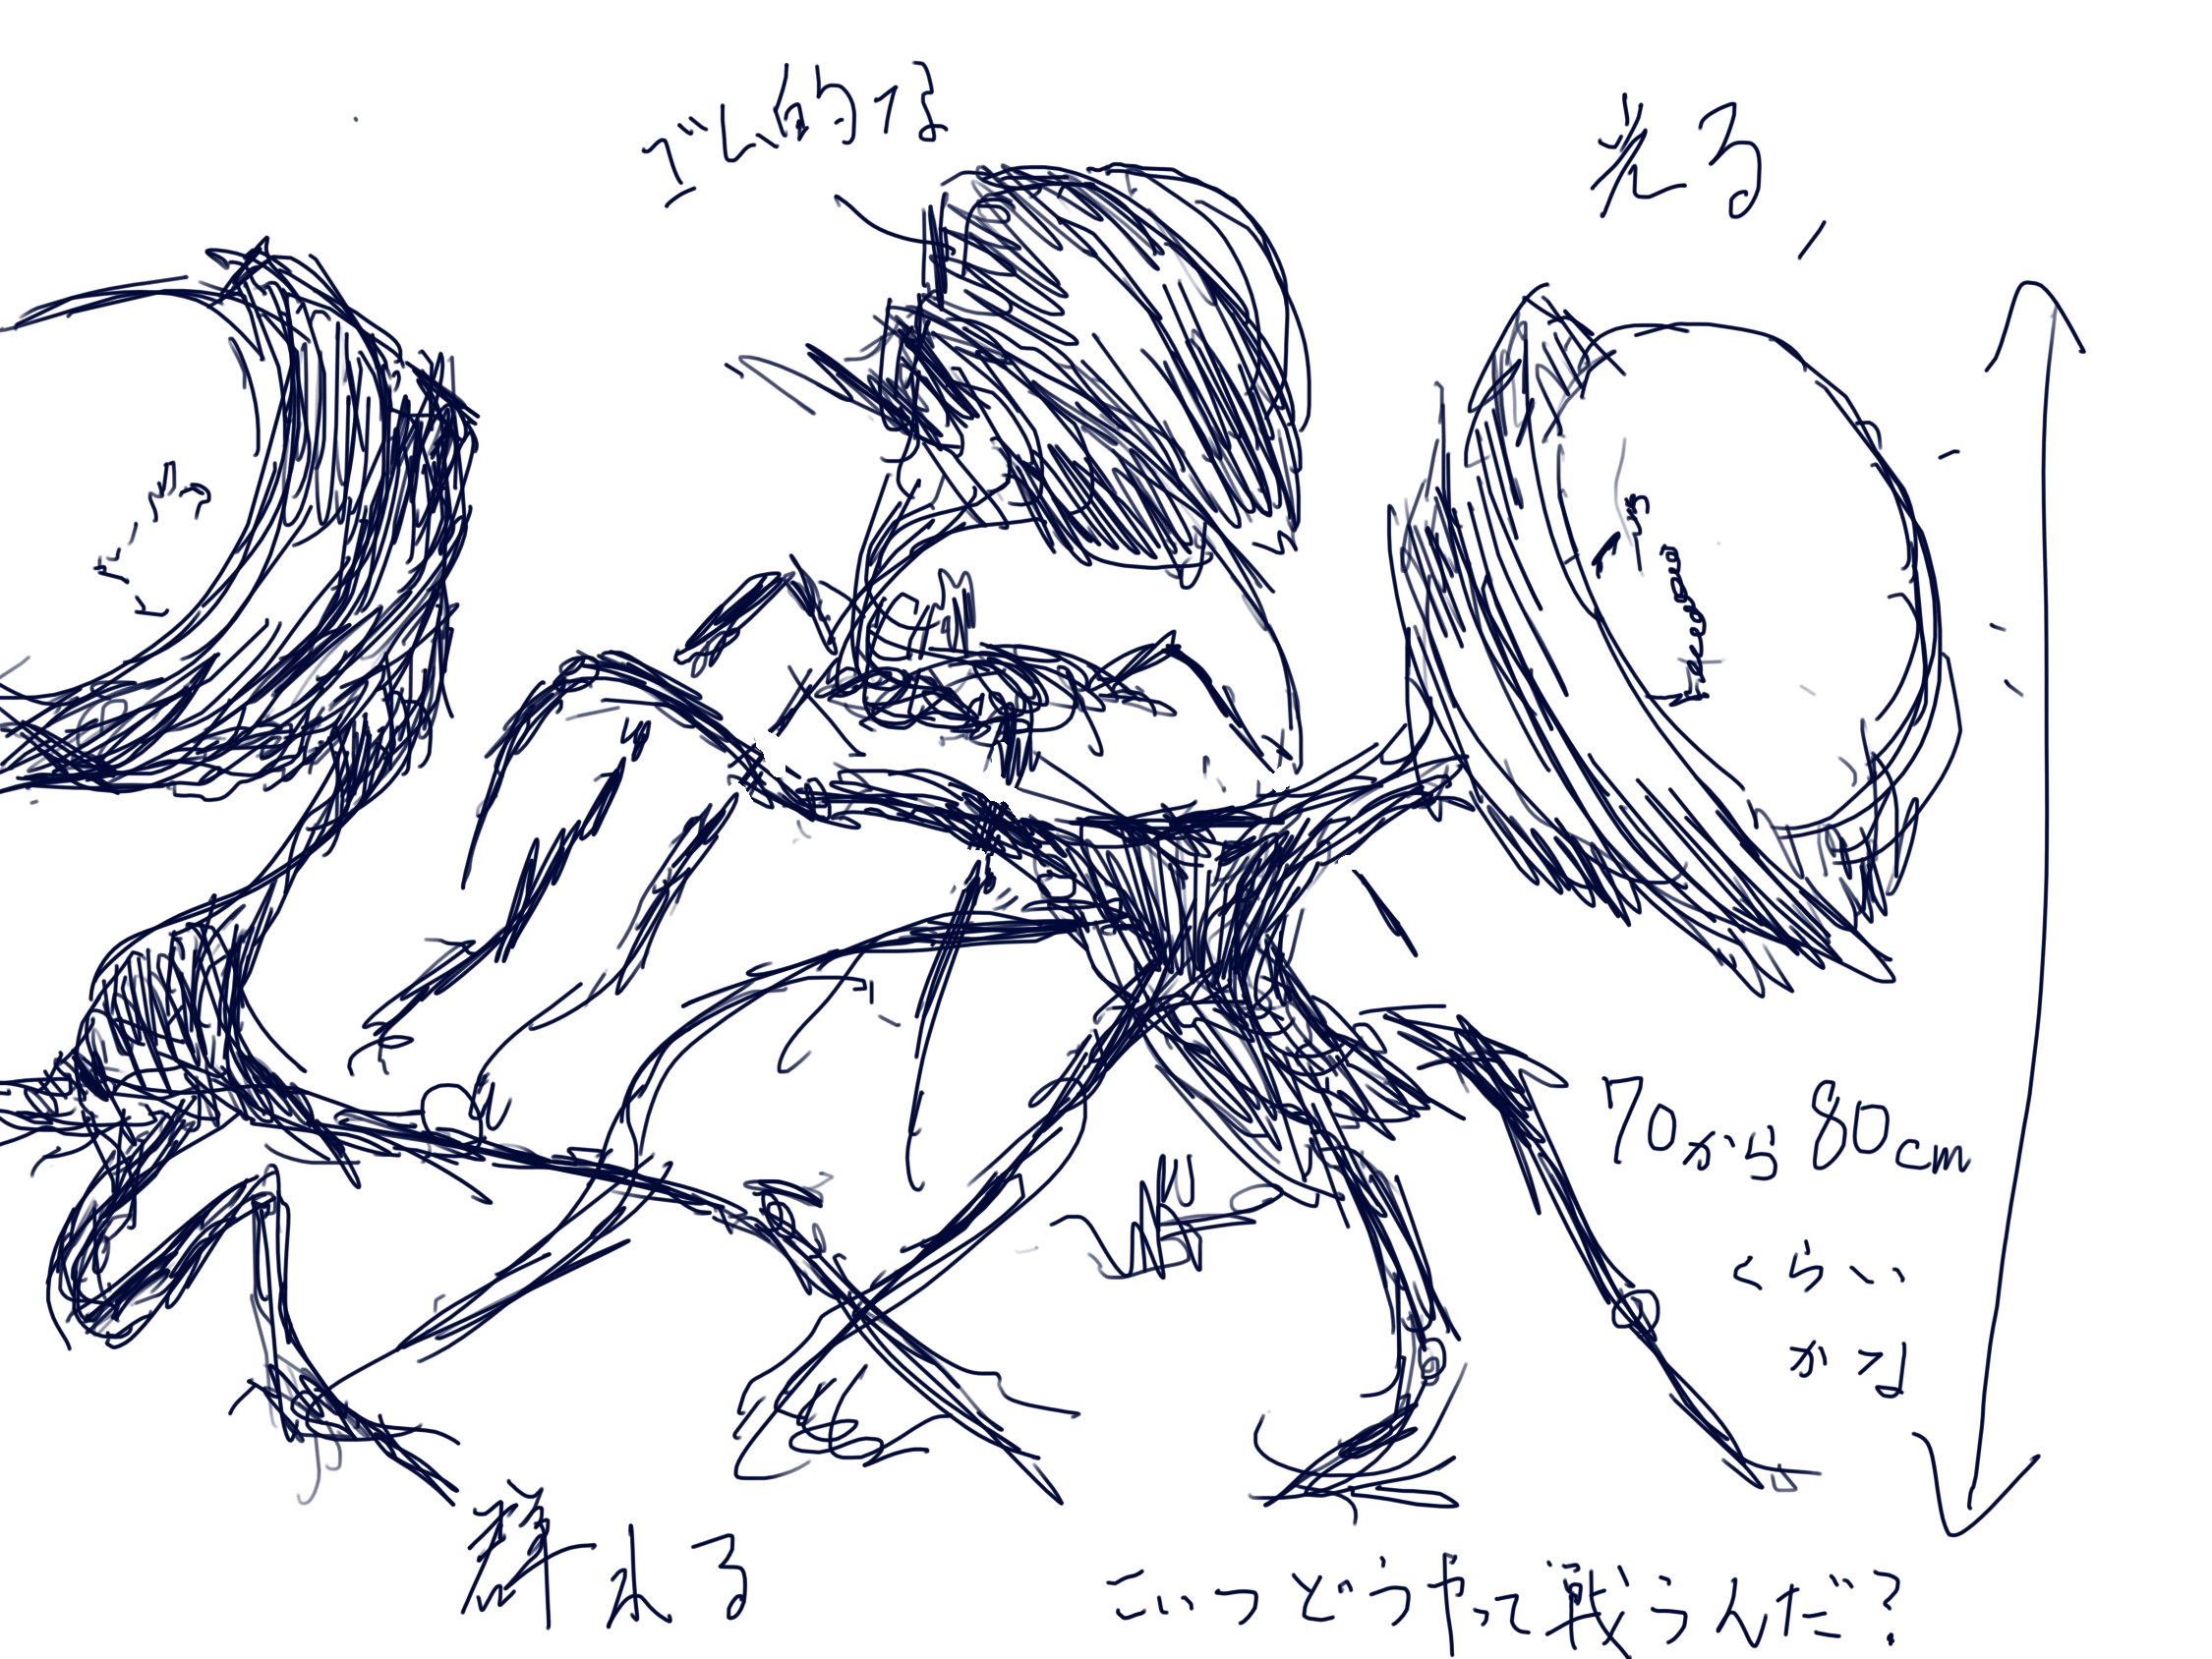 ゴム的な
光る
70から80cm
くらい
かな
痺れる
こいつどうやって戦うんだ?